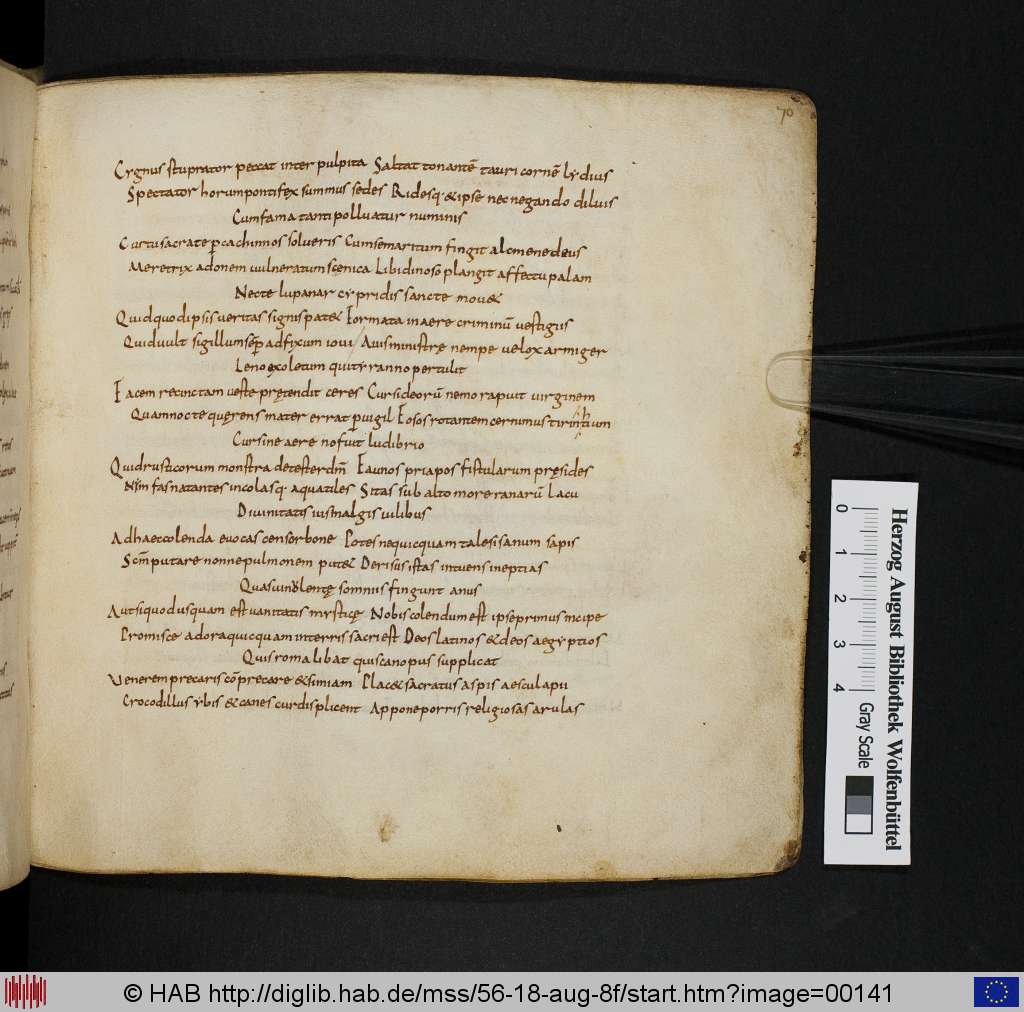 70
Cygnus stuprator peccat inter pulpita Saltat tonantē tauricornē lydius
Spectator horum pontifex summus sedes Ridesq· & ipse nec negando diluis
Cum fama tanti polluatur numinis
Cur tu sacrate p cachinnos solueris Cum se maritum fingit alcmene deus
Meretrix adonem uulneratum scęnica Libidinoso plangit affectu palam
Nec te lupanar cypridis sancte mou&
Quid quod ipsis ueritas signis pat& Formata in aere criminū uestigiis
Quid uult sigillum sēp adfixum ioui Auis ministrę nempe uelox armiger
Leno exoletum qui tyranno pertulit
Facem recinctam ueste prętendit ceres Cur si deorū nemo rapuit uirginem
Quam nocte quęrens mater errat puigil Fosos rotantem cernimus tirinthium
Cur si ne aere no fuit ludibrio
Quid rusticorum monstra detesterdm̄ Faunos priapos fistularum pręsides
Nimfas natantes incolasq· aquatiles Sitas sub alto more ranarū lacu
Diuinitatis ius in algis uilibus
Ad haec colenda euocas censor bone Potesne quicquam tale si sanum sapis
Scm̄ putare nonne pulmonem put& Derisus istas intuens ineptias
Quas uinolentę somnus fingunt anus
Aut siquod usquam est uanitatis mysticę Nobis colendum est ipse primus incipe
Promisce adora quicquam in terris sacri est Deos latinos & deos aegyptios
Quis roma libat quis canopus supplicat
Venerem precaris cōprecare & simiam Plac& sacratus aspis aesculapii
Crocodillus ybis & canes cur displicent Appone porris religiosas arulas
Herzog August Bibliothek Wolfenbüttel
0 1 2 3 4 Gray Scale
© HAB http://diglib.hab.de/mss/56-18-aug-8f/start.htm?image=00141